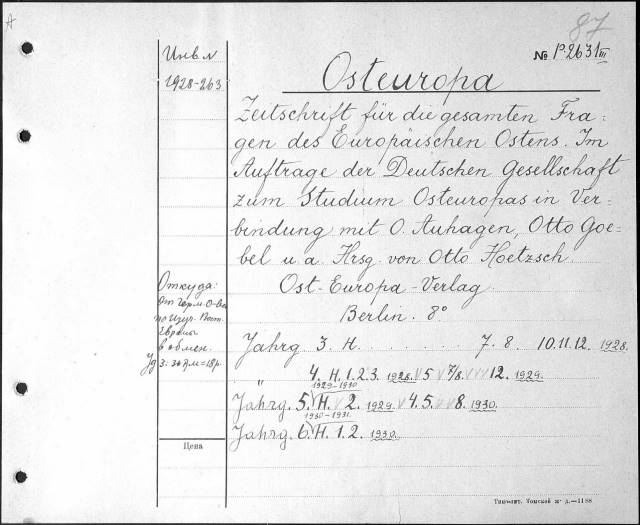 A
87
Инв. N
1928-263
№ P.2631 III
Osteuropa
Zeitschrift für die gesamten Fra=
gen des Europäischen Ostens. Im
Auftrage der Deutschen Gesellschaft
zum Studium Osteuropas in Ver=
bindung mit O. Auhagen, Otto Goe=
bel u. a. Hrsg. von Otto Hoetzsch.
Ost-Europa-Verlag
Berlin. 8°
Откуда:
от Герм. О-ва
по Изуч. Вост.
Европы
в обмен.
Jahrg. 3. H. . . . . . . 7. 8. 10. 11. 12. 1928.
" 4. H. 1. 2. 3. 1928. 5 7/8. 12. 1929.
1929-1930
Jahrg. 5. H. 2. 1929. 4. 5. 8. 1930.
1930-1931.
Jahrg. 6. H. 1. 2. 1930.
Цена
Типолит. Томской ж д.—1188